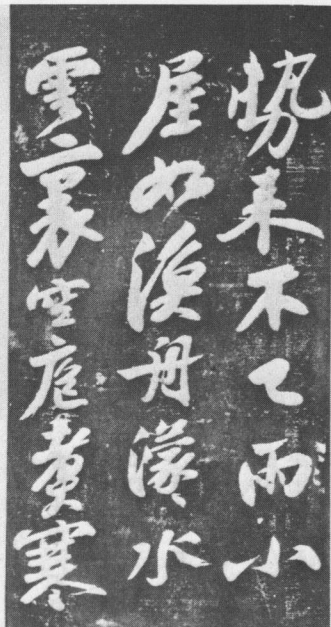 勢来不已雨小
屋如漁舟濛〻水
雲裏空庖煮寒